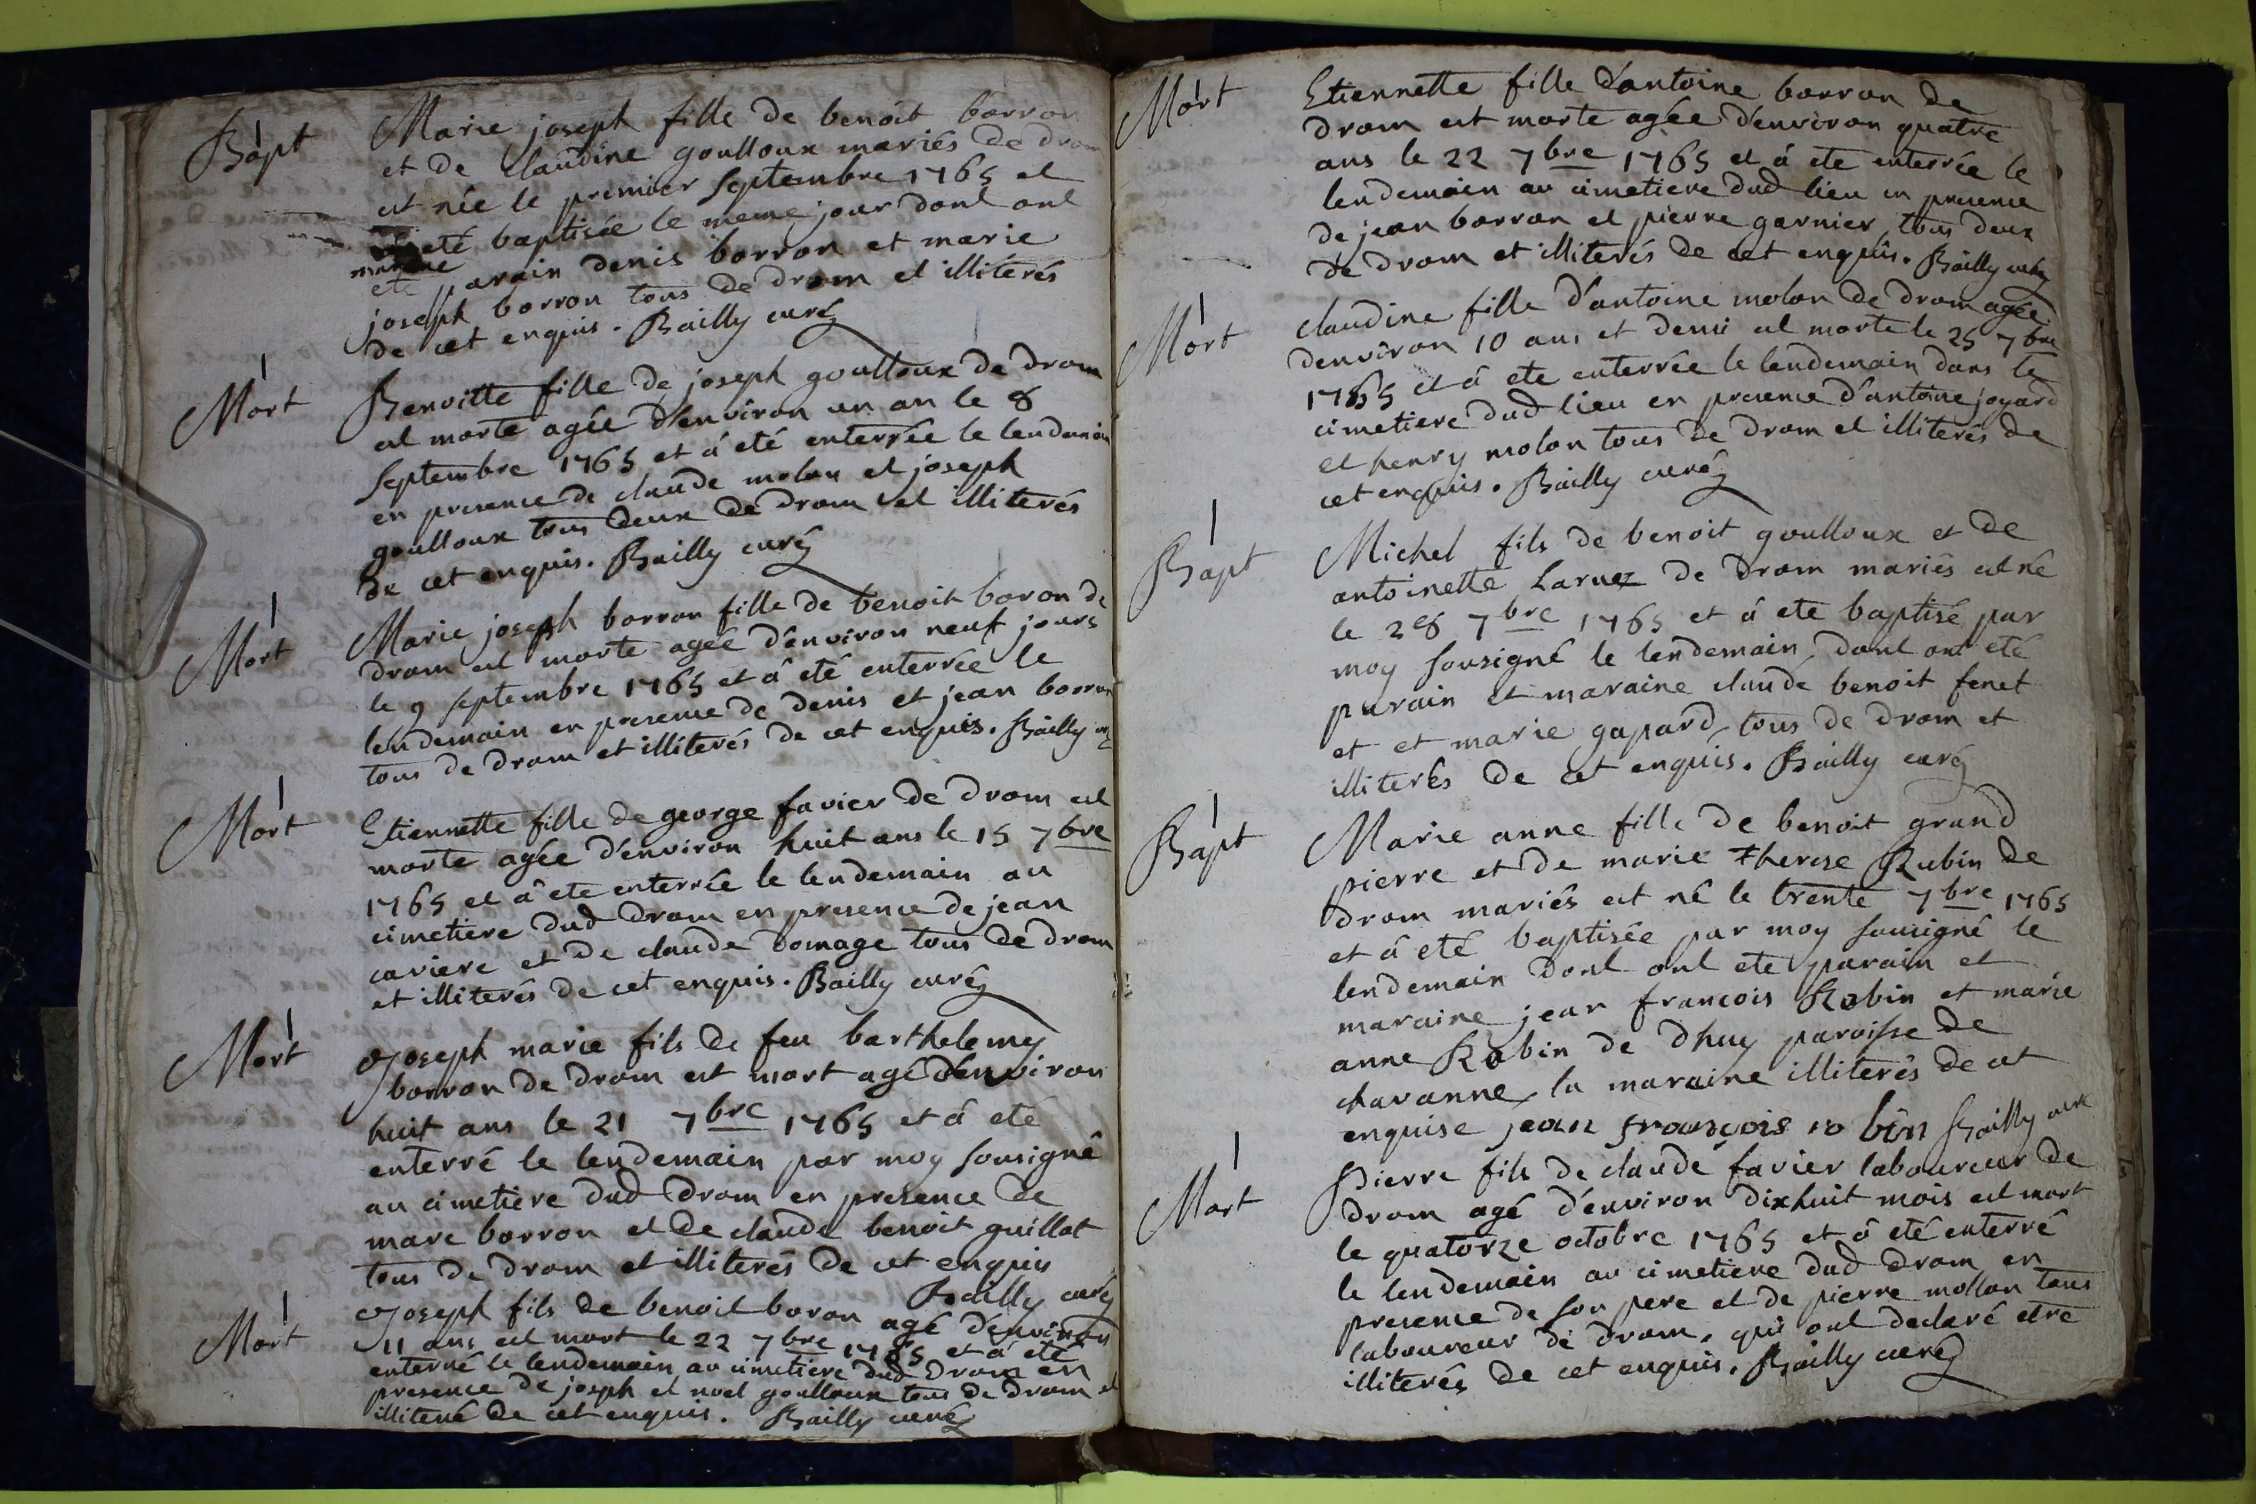 Bapt
Marie joseph fille de benoit borron
et de claudine goulloux mariés de drom
est née le premier septembre 1765 et
eté baptisée le meme jour dont ont
maraine
eté parain denis borron et marie
joseph borron tous de drom et illiterés
de cet enquis. Bailly curé
Mort
Benoitte fille de joseph goulloux de drom
est morte agée d'environ un an le 8
septembre 1765 et á eté enterrée le lendemain
en presence de claude molon et joseph
goulloux tous deux de drom et illiterés
de cet enquis. Bailly curé
Mort
Marie joseph borron fille de benoit boron de
drom est morte agée d'environ neuf jours
le 9 septembre 1765 et â eté enterrée le
lendemain en presence de denis et jean borron
tous de drom et illiterés de cet enquis. Bailly
Mort
Etiennette fille de george favier de drom est
morte agée d'environ huit ans le 15 7bre
1765 et â ete enterrée le lendemain au
cimetiere dud drom en presence de jean
cariere et de claude bomage tous de drom
et illiterés de cet enquis. Bailly curé
Mort
Joseph marie fils de feu barthelemy
borron de drom est mort agé d'environ
huit ans le 21 7bre 1765 et á eté
enterré le lendemain par moy sousigné
au cimetiere dud drom en presence de
marc borron et de claude benoit guillot
tous de drom et illiterés de cet enquis
Bailly curé
Mort
Joseph fils de benoit boron agé d'environ
11 ans est mort le 22 7bre 1765 et á eté
enterré le lendemain au cimetiere dud drom en
presence de joseph et noel goulloux tous de drom et
illiteré de cet enquis. Bailly curé
Mort
Etiennette fille d'antoine borron de
drom est morte agée d'environ quatre
ans le 22 7bre 1765 et á ete enterrée le
lendemain au cimetiere dud lieu en presence
de jean borron et pierre garnier tous deux
de drom et illiterés de cet enquis. Bailly curé
Mort
claudine fille d'antoine molon de drom agée
d'environ 10 ans et demi est morte le 25 7bre
1765 et á ete enterrée le lendemain dans le
cimetiere dud lieu en presence d'antoine joyard
et henry molon tous de drom et illiterés de
cet enquis. Bailly curé
Bapt
Michel fils de benoit goulloux et de
antoinette Laruez de drom mariés est né
le 28 7bre 1765 et á ete baptisé par
moy sousigné le lendemain, dont ont eté
parain et maraine claude benoit fenet
et et marie gapard, tous de drom et
illiterés de cet enquis. Bailly curé
Bapt
Marie anne fille de benoit grand
pierre et de marie therese Rubin de
drom mariés est né le trente 7bre 1765
et á eté baptisée par moy sousigné le
lendemain dont ont ete parain et
maraine jean francois Robin et marie
anne Robin de dhuy paroisse de
chavanne, la maraine illiterés de cet
enquise jean françois robin Bailly curé
Mort
Pierre fils de claude favier laboureur de
drom agé d'environ dixhuit mois est mort
le quatorze octobre 1765 et á eté enterré
le lendemain au cimetiere dud drom en
presence de son pere et de pierre mollon tous
laboureur de drom, qui ont declaré etre
illiterés de cet enquis. Bailly curé